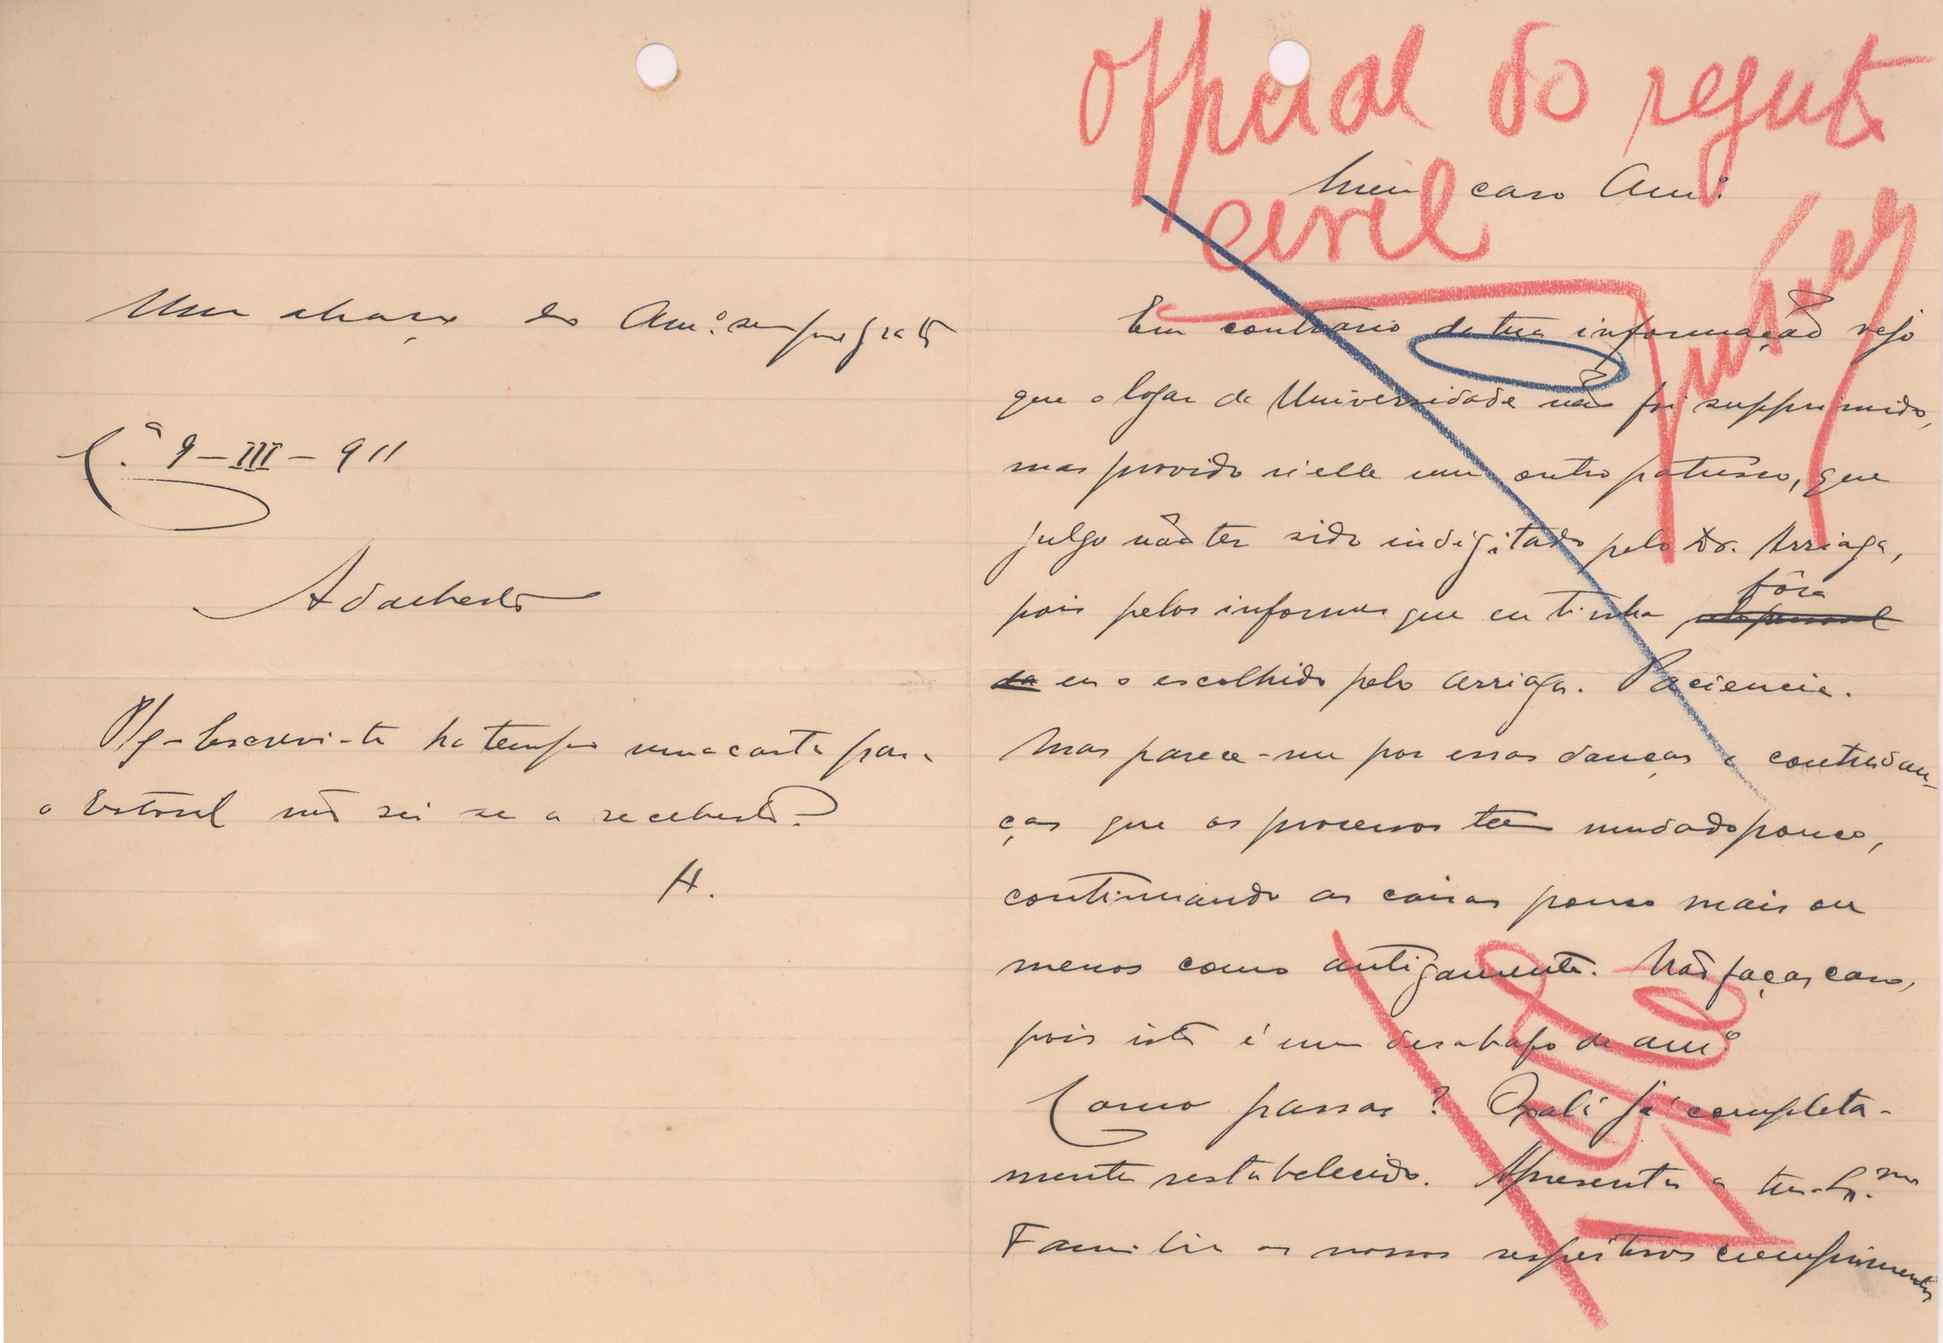 Official do registo
civil
Meu caro Am.º
Em contrario da tua informação vejo
que o logar da Universidade não foi supprimido,
mas provido n'elle um outro patusco, que
julgo não ter sido indigitado pelo Dr. Arriaga,
pois pelos informes que eu tinha fôra
eu o escolhido pelo Arriaga. Paciencia.
Mas parece-me por essas danças e contradan-
ças que os processos teem mudado pouco,
continuando as coisas pouco mais ou
menos como antigamente. Não faças caso,
pois isto é um desabafo de am.º
Como passas? Oxalá já completa-
mente restabelecido. Apresenta a tua Ex.ma
Familia os nossos respeitosos cumprimentos
Um abraço do Am.º sempre grato
C.ª 9-III-911
Adalberto
P/S - Escrevi-te ha tempo uma carta para
o Estoril não sei se a recebeste?
A.